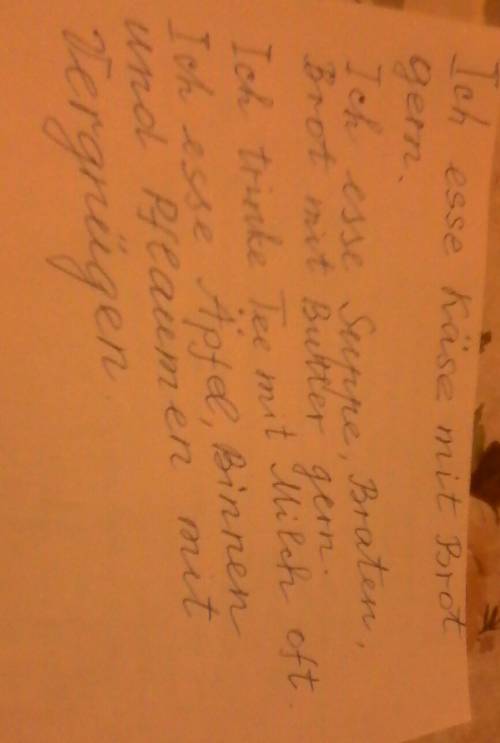 Ich esse Käse mit Brot
gern.
Ich esse Suppe, Braten,
Brot mit Butter gern.
Ich trinke Tee mit Milch oft.
Ich esse Äpfel, Binnen
und Pflaumen mit
Vergnügen.